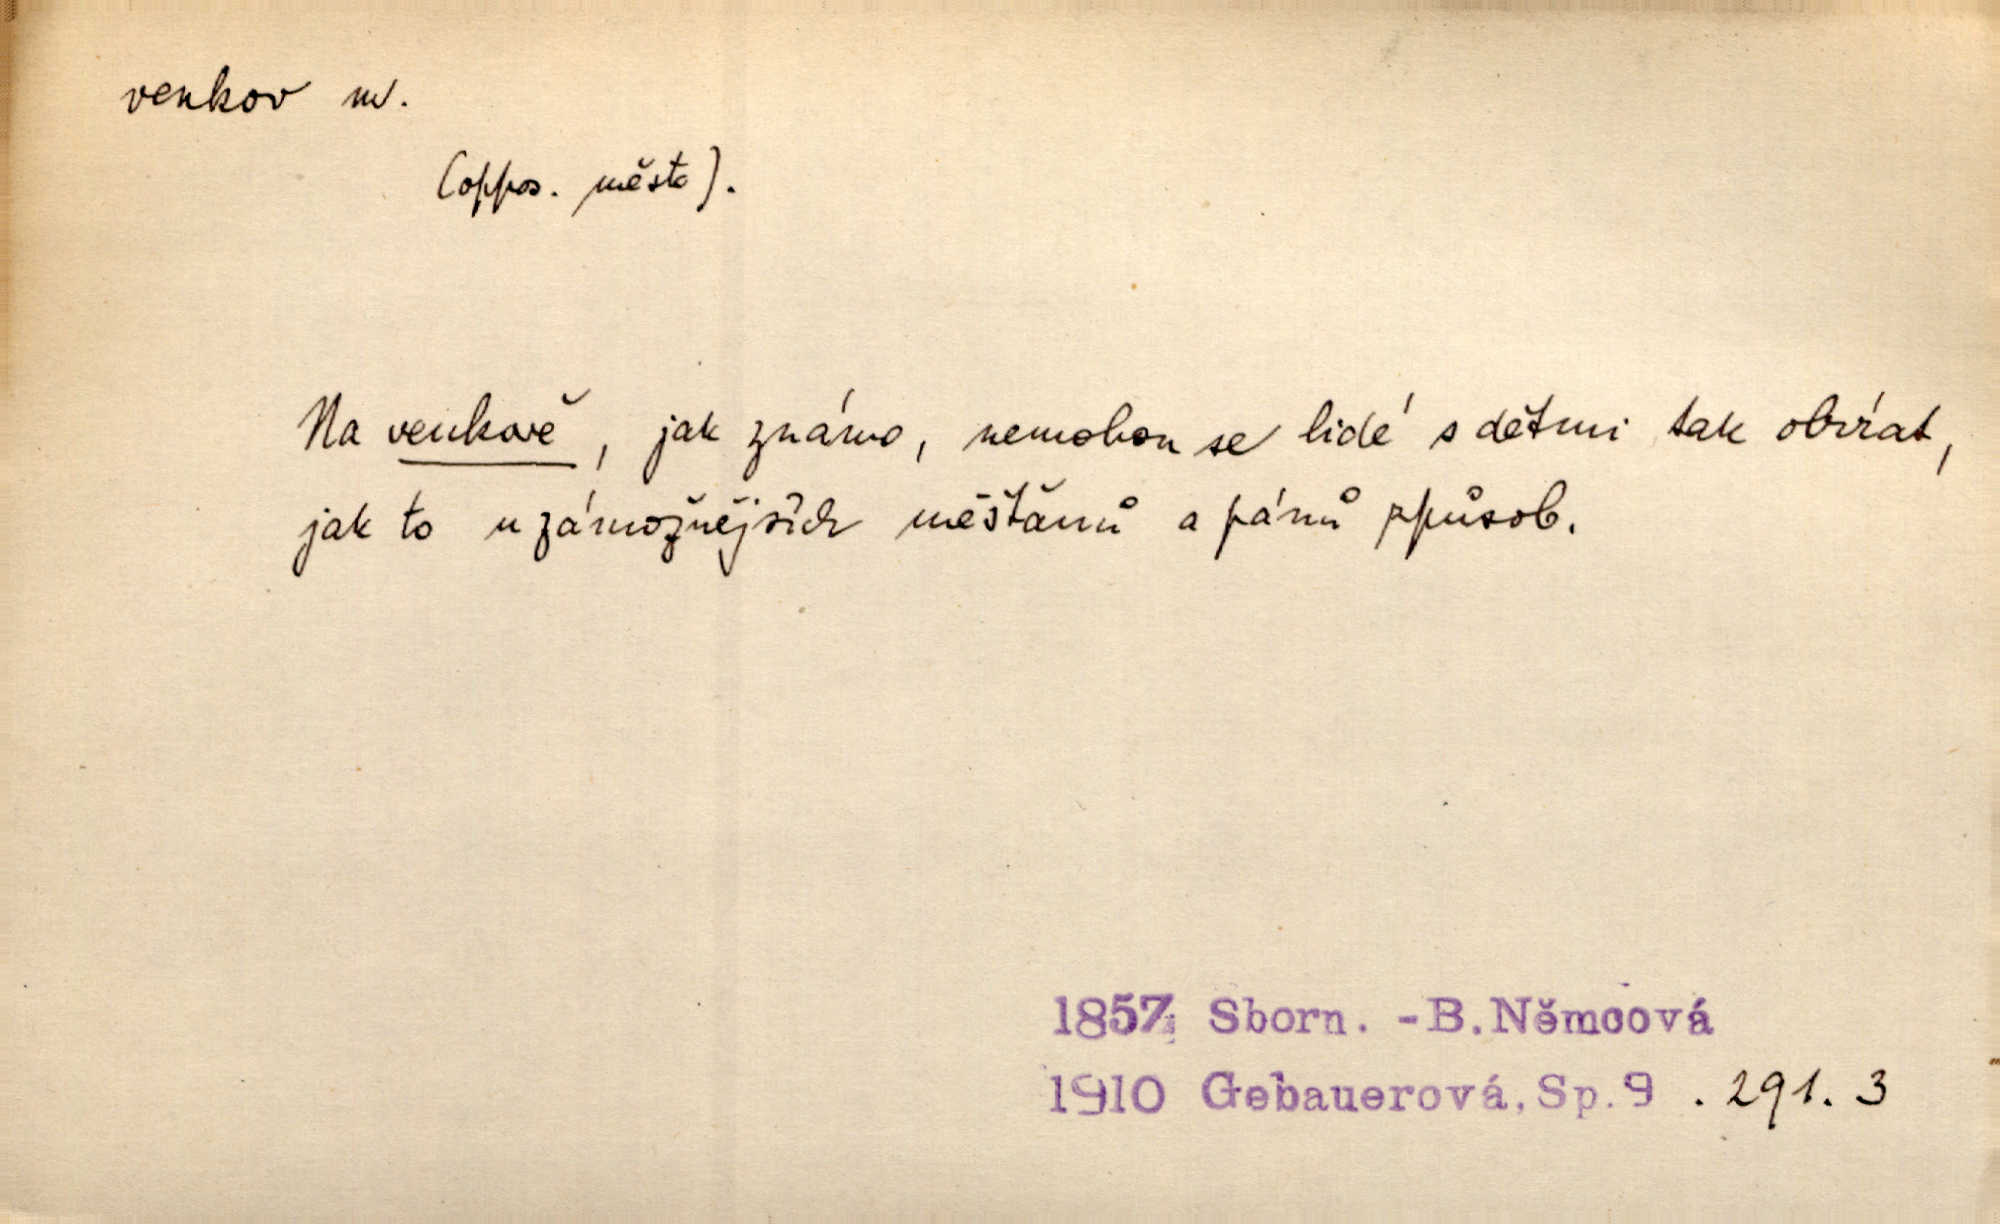 venkov m.
(oppos. město).
Na venkově, jak známo, nemohou se lidé s dětmi tak obírat,
jak to u zámožnějších měšťanů a pánů způsob.
1857 Sborn. - B. Němcová
1910 Gebauerová, Sp. 9 . 291. 3